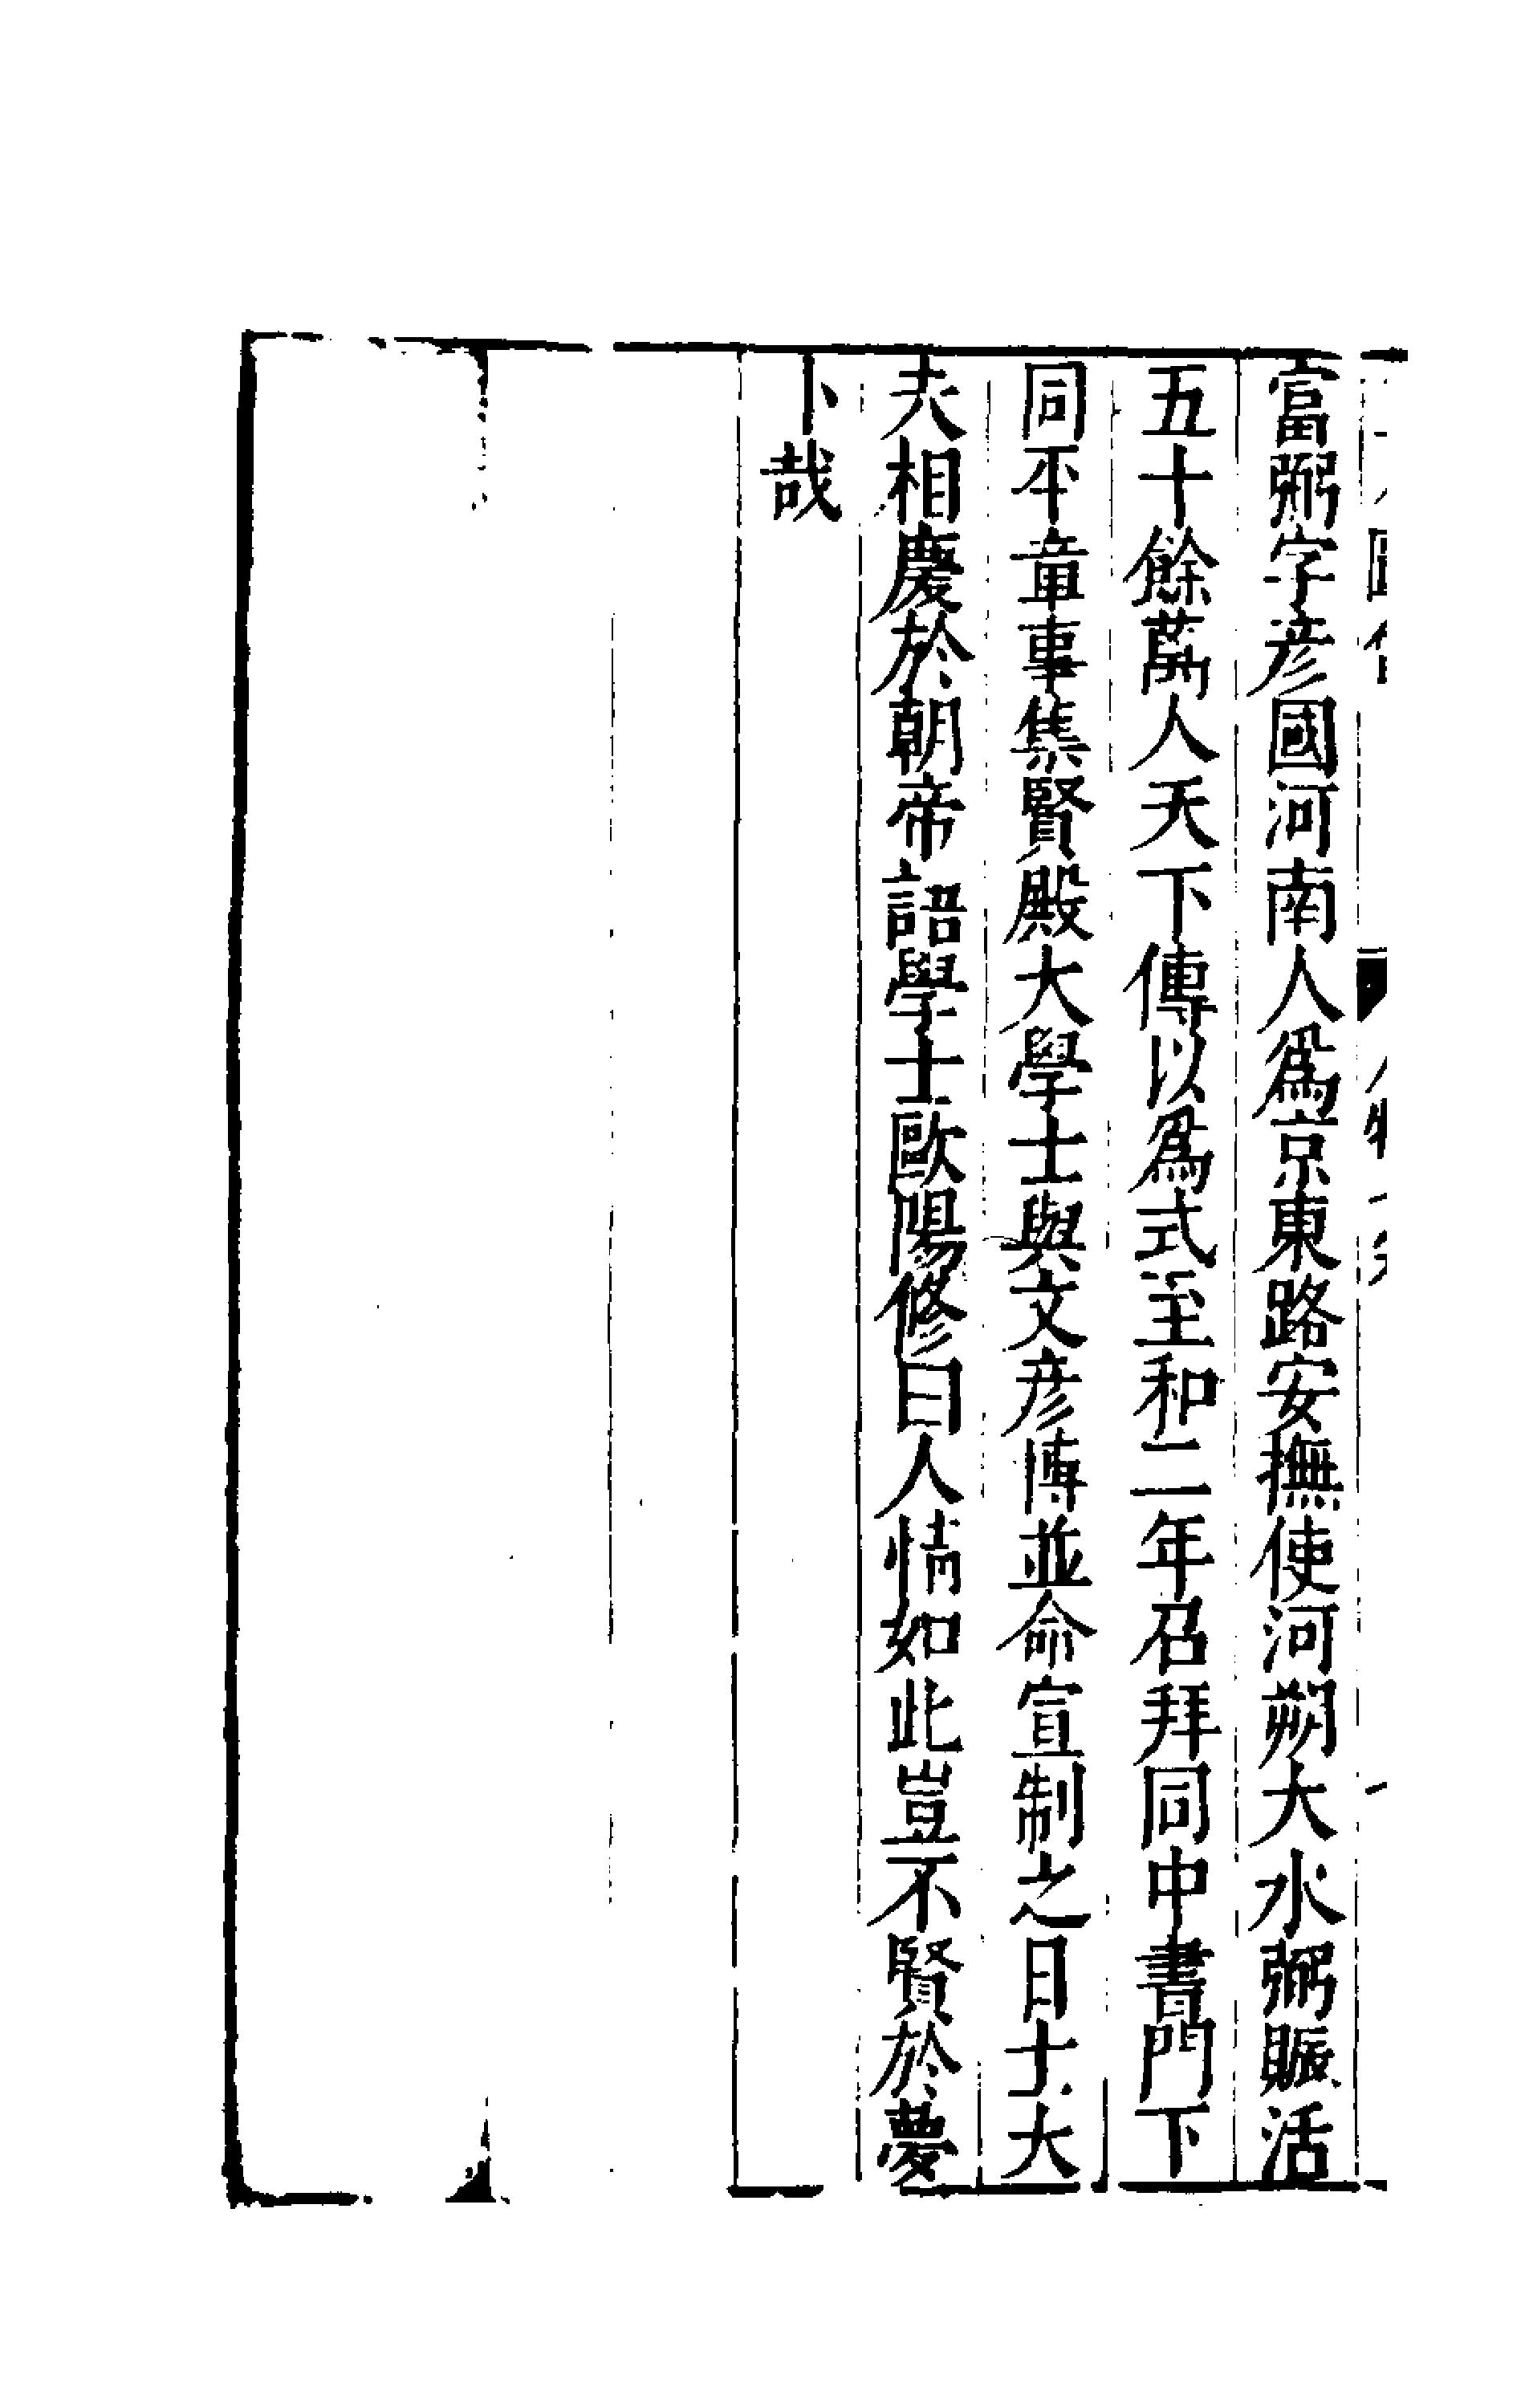 富弼字彦國河南人爲京東路安撫使河朔大水弼賑活
五十餘萬人天下傳以爲式至和二年召拜同中書門下
同平章事集賢殿大學士與文彦博並命宣制之日士大
夫相慶於朝帝語學士歐陽修曰人情如此豈不賢於夢
卜哉